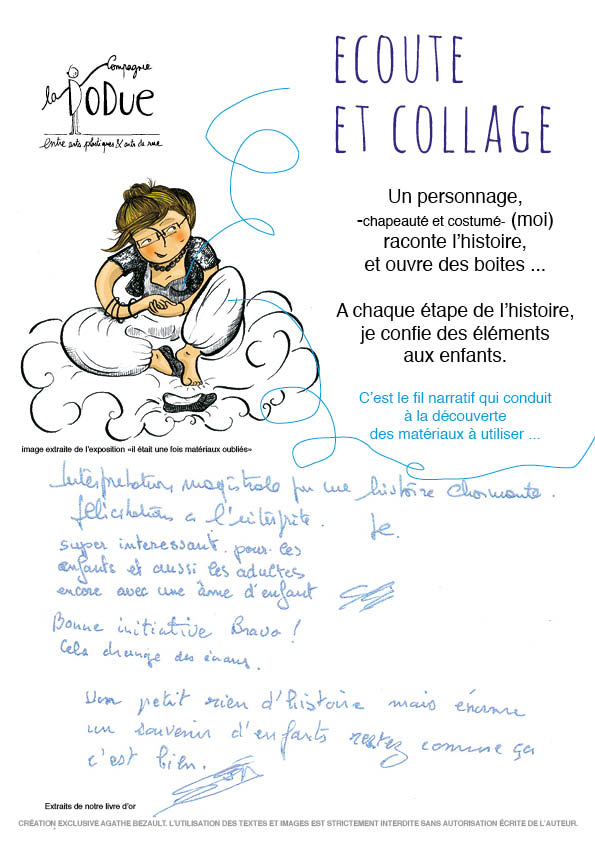 Compagnie
la PODUE
entre arts plastiques & arts de rue
ECOUTE
ET COLLAGE
Un personnage,
-chapeauté et costumé- (moi)
raconte l'histoire,
et ouvre des boites ...
A chaque étape de l'histoire,
je confie des éléments
aux enfants.
C'est le fil narratif qui conduit
à la découverte
des matériaux à utiliser ...
image extraite de l'exposition «il était une fois matériaux oubliés»
Interprétation magistrale pr une histoire charmante.
félicitations a l'interprète.
super interessant pour les
enfants et aussi les adultes
encore avec une âme d'enfant
Bonne initiative Bravo !
Cela change des écrans.
Un petit rien d'histoire mais énorme
un souvenir d'enfants restez comme ça
c'est bien.
Extraits de notre livre d'or
CRÉATION EXCLUSIVE AGATHE BEZAULT. L'UTILISATION DES TEXTES ET IMAGES EST STRICTEMENT INTERDITE SANS AUTORISATION ÉCRITE DE L'AUTEUR.